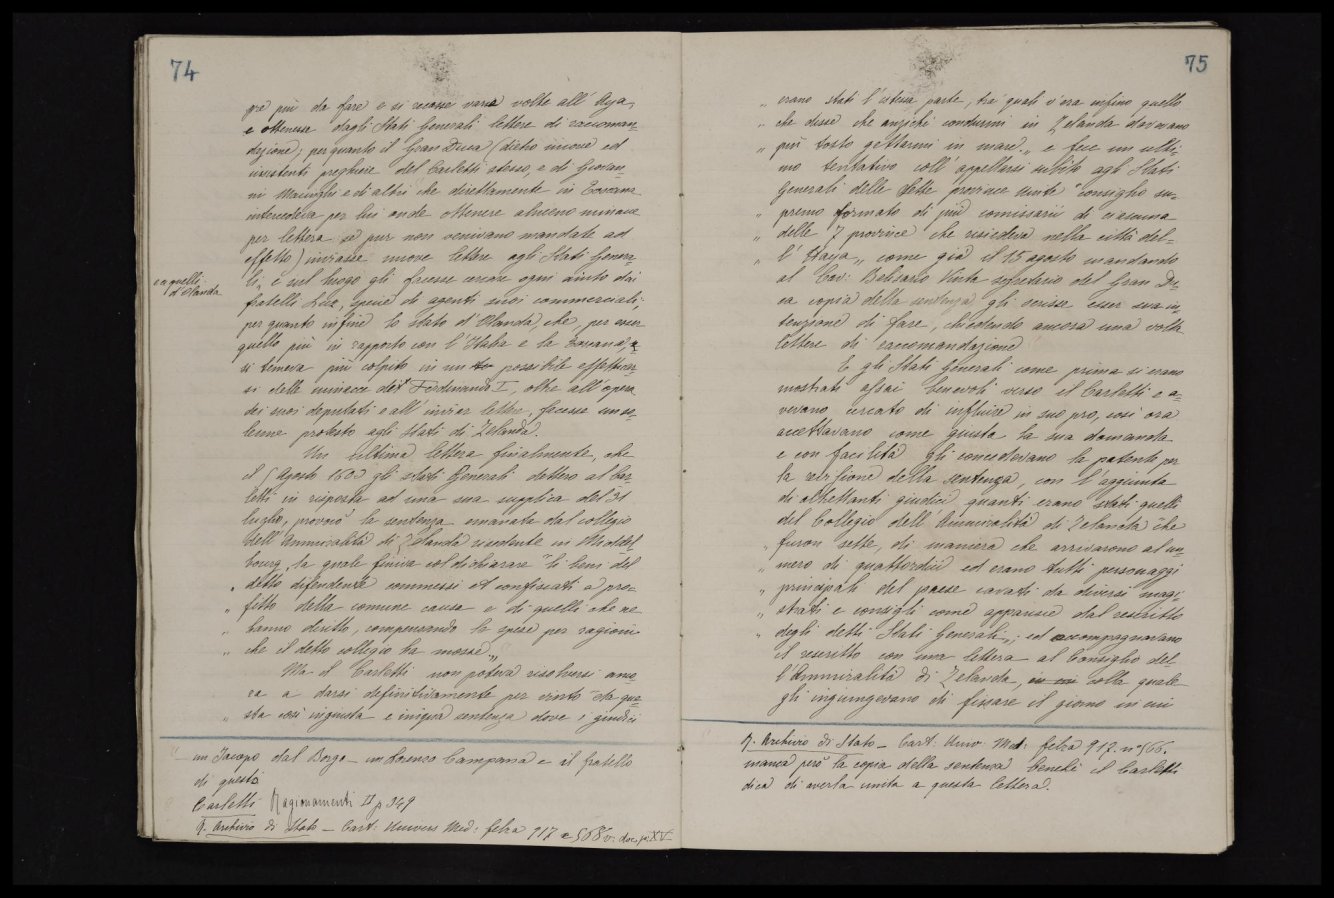 74
pre più da fare e si recasse varie volte all' Aya,
e ottenesse dagli Stati Generali lettere di raccoman=
dazione; per quanto il Gran Duca (dietro nuove ed
insistenti preghiere del Carletti stesso, e di Giovan=
ni Macinghi e di altri che direttamente in Toscana
intercedeva per lui onde ottenere almeno minacce
per lettera se pur non venivano mandate ad
effetto) inviasse nuove lettere agli Stati Genera=
e a quelli
d'Olanda
li, e sul luogo gli facesse cercare ogni aiuto dai
fratelli Lus, specie di agenti suoi commerciali;
per quanto infine lo stato d'Olanda, che per esser
quello più in rapporto con l'Italia e la Toscana,
si temeva più colpito in un possibile effettuar=
si delle minacce di Ferdinando I, oltre all'opera
dei suoi deputati e all' inviar lettere, facesse un so=
lenne protesto agli Stati di Zelanda.
Un' ultima lettera finalmente, che
il 5 Agosto 1603 gli Stati Generali dettero al Car=
letti in risposta ad una sua supplica del 31
luglio, provocò la sentenza emanata dal collegio
dell'Ammiralità di Zelanda risedente in Middel=
bourg, la quale finiva col dichiarare "li beni del
" detto difendente commessi et confiscati a pro=
" fitto della comune causa e di quelli che ne
" hanno diritto, compensando le spese per ragioni
" che il detto collegio ha mosse "
Ma il Carletti non poteva risolversi anco=
ra a darsi definitivamente per vinto "da que=
" sta così ingiusta e iniqua sentenza dove i giudici
un Jacopo dal Borgo - un Lorenzo Campana e il fratello
di questo
Carletti Ragionamenti II p 349
R. Archivio di Stato - Cart: Univers Med: filza 912 c 566 v: doc. n XV
75
" erano stati l'istessa parte, tra' quali v'era infino quello
" che disse che anzichè condurmi in Zelanda dovevano
" più tosto gettarmi in mare, " e fece un ulti=
mo tentativo coll' appellarsi subito agli Stati
Generali delle dette provincie unite "consiglio su=
" premo formato di più comissarii di ciascuna
" delle 7 provincie che risiedeva nella città del=
" l'Haya " come già il 15 agosto mandando
al Cav: Belisario Vinta segretario del Gran Du=
ca copia della sentenza gli scrisse esser sua in=
tenzione di fare, chiedendo ancora una volta
lettere di raccomandazione
E gli Stati Generali come prima si erano
mostrati assai benevoli verso il Carletti e a=
vevano cercato di influire in suo pro, così ora
accettavano come giusta la sua domanda
e con facilità gli concedevano la patente per
la revisione della sentenza, con l'aggiunta
di altrettanti giudici quanti erano stati quelli
del Collegio dell'Ammiralità di Zelanda che
" furon sette, di maniera che arrivarono al nu=
" mero di quattordici ed erano tutti personaggi
" principali del paese cavati da diversi magi=
" strati e consigli come apparisce dal rescritto
" degli detti Stati Generali "; ed accompagnavano
il rescritto con una lettera al Consiglio del=
l'Ammiralità di Zelanda, colla quale
gli ingiungevano di fissare il giorno in cui
R. Archivio di Stato - Cart: Univ: Med: filza 912. n° 566.
manca però la copia della sentenza benchè il Carletti
dica di averla unita a questa lettera.